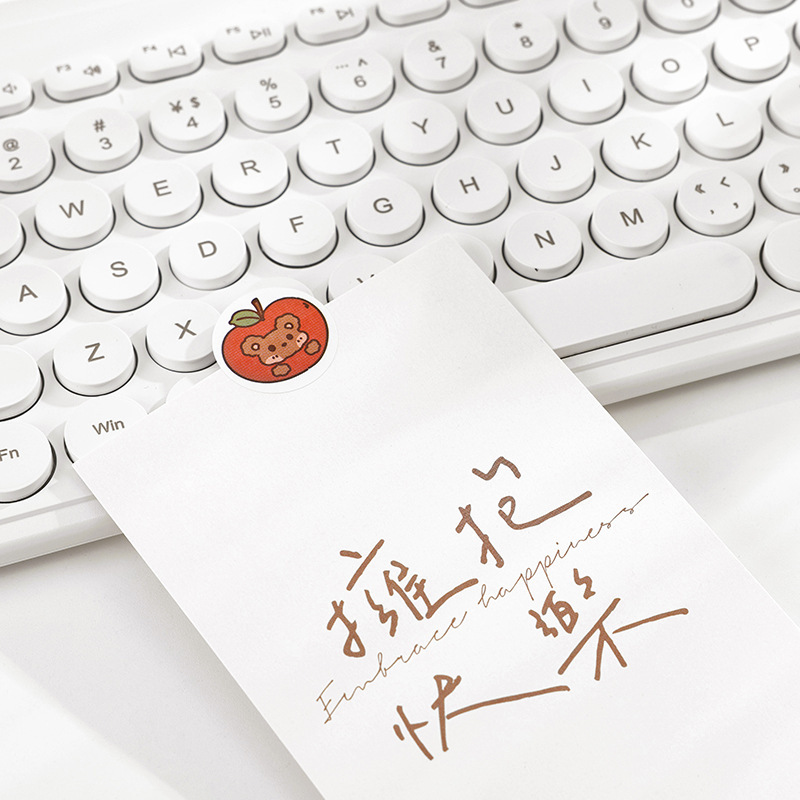 F3
F4
F5
F6
@ 2
# 3
¥ $ 4
% 5
…… ^ 6
& 7
* 8
( 9
W E R T Y U I O P
A S D F G H J K L
Z X N M 《 < , ,
Fn Win
擁抱
Embrace happiness
快樂